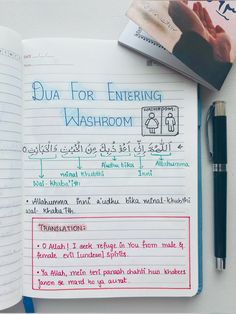 DUA FOR ENTERING
WASHROOM
WASHROOMS
اَللّٰهُمَّ اِنِّيْ اَعُوْذُ بِكَ مِنَ الْخُبُثِ وَالْخَبَائِثِ
Audhu bika Allahumma
minal khubthi Inni
Wal-Khaba'ith
• Allahumma inni a'udhu bika minal-khubthi
wal-khaba'ith.
TRANSLATION:
• O Allah! I seek refuge in You from male &
female evil (unclean) spirits.
• Ya Allah, mein teri panaah chahti hu khabees
jinon se mard ho ya aurat.